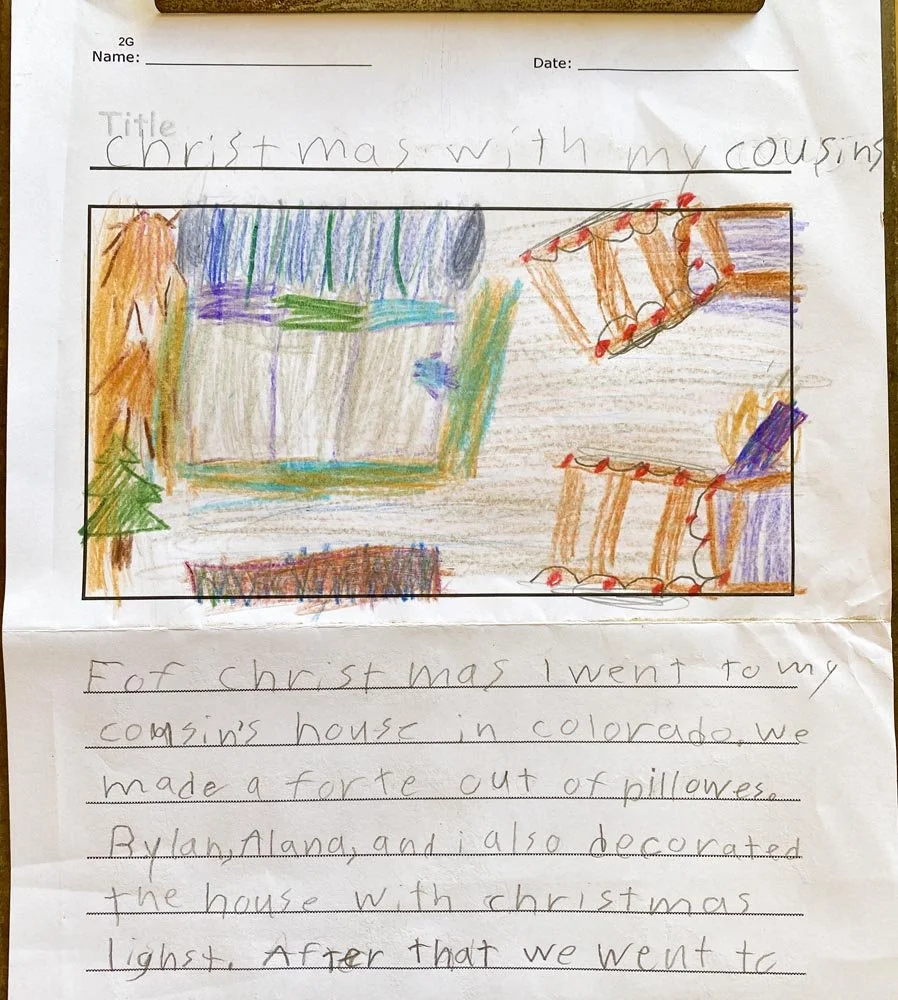 2G
Name:
Date:
Title
Christmas with my cousins
Fof christmas I went to my
cousin's house in colorado. We
made a forte out of pillowes.
Rylan, Alana, and i also decorated
the house with christmas
lighst. After that we went to